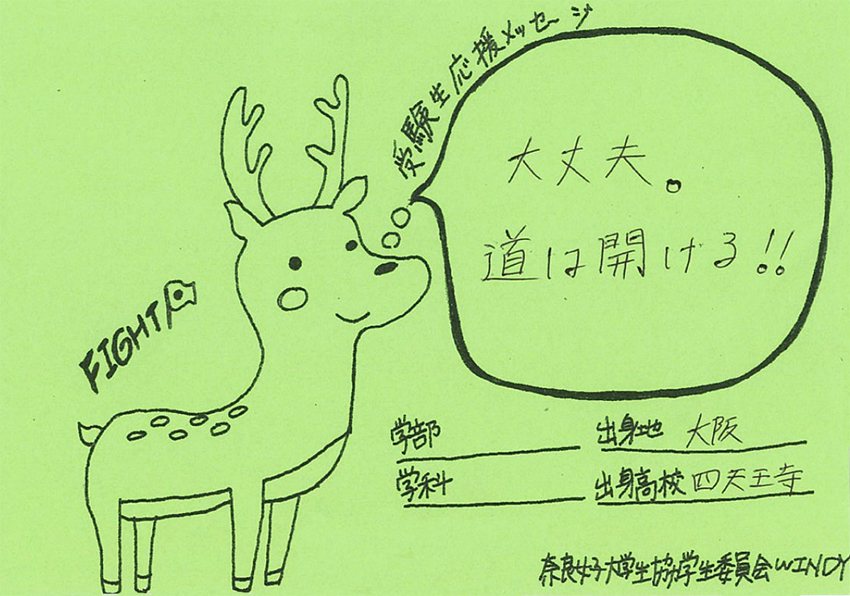 受験生応援メッセージ
大丈夫。
道は開ける!!
FIGHT
学部
出身地 大阪
学科
出身高校 四天王寺
奈良女子大学生協学生委員会WINDY